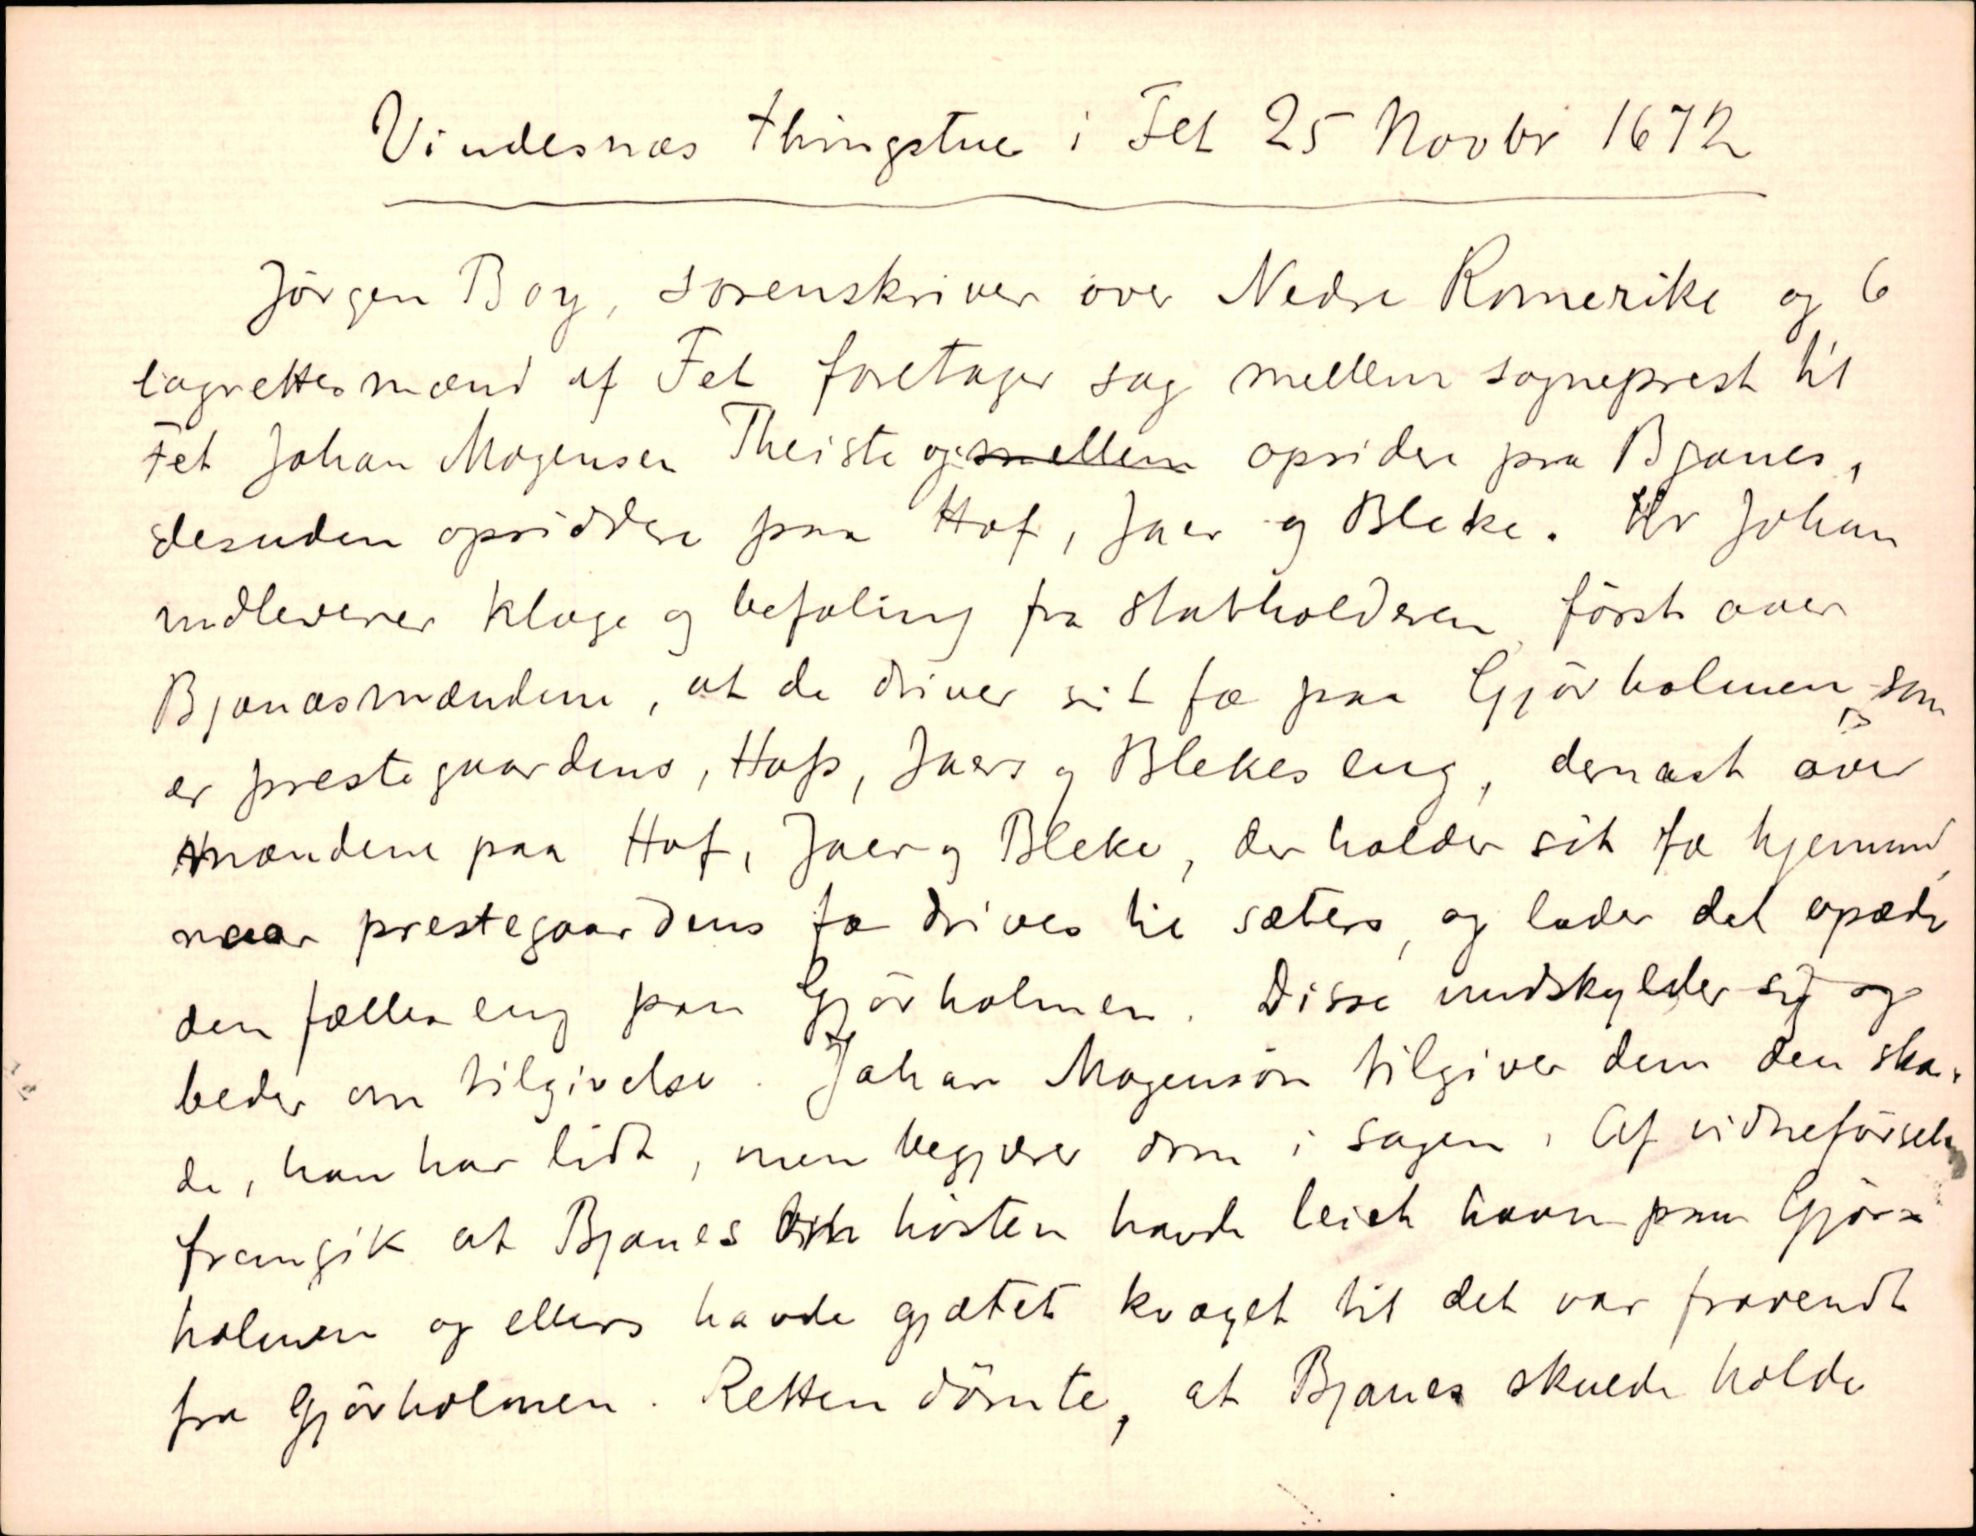 Vindesnæs thingstue i Fet 25 Novbr 1672
Jörgen Boy, sorenskriver over Nedre Romerike og 6
lagrettesmænd af Fet foretager sag mellem sogneprest til
Fet Johan Mogensen Theiste og mellem opsidere paa Bjanes,
desuden opsiddere paa Hof, Jaer og Bleke. Hr Johan
indleverer klage og befaling fra statholderen, först over
Bjanæsmændene, at de driver sit fæ paa Gjörholmen, som
er prestegaardens, Hofs, Jaers og Blekes eng, dernæst over
mændene paa Hof, Jaer og Bleke, der holder sit fæ hjemme,
naar prestegaardens fæ drives til sæters, og lader det opæde
den fælles eng paa Gjörholmen. Disse undskylder sig og
beder om tilgivelse. Johan Mogensön tilgiver dem den ska-
de, han har lidt, men begjærer dom i sagen. Af vidneförselen
fremgik at Bjanes hösten havde leiet havn paa Gjör-
holmen og ellers havde gjætet kvæget til det var fravendt
fra Gjörholmen. Retten dömte, at Bjanes skulde holde